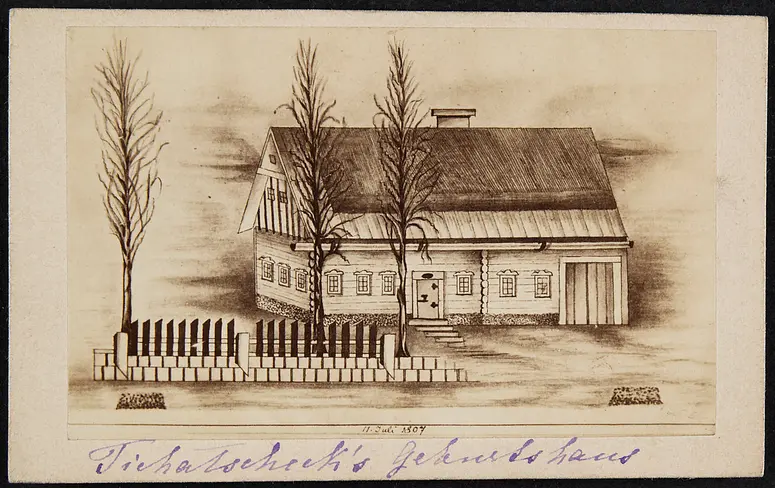 11. Juli 1807
Tichatscheck's Geburtshaus